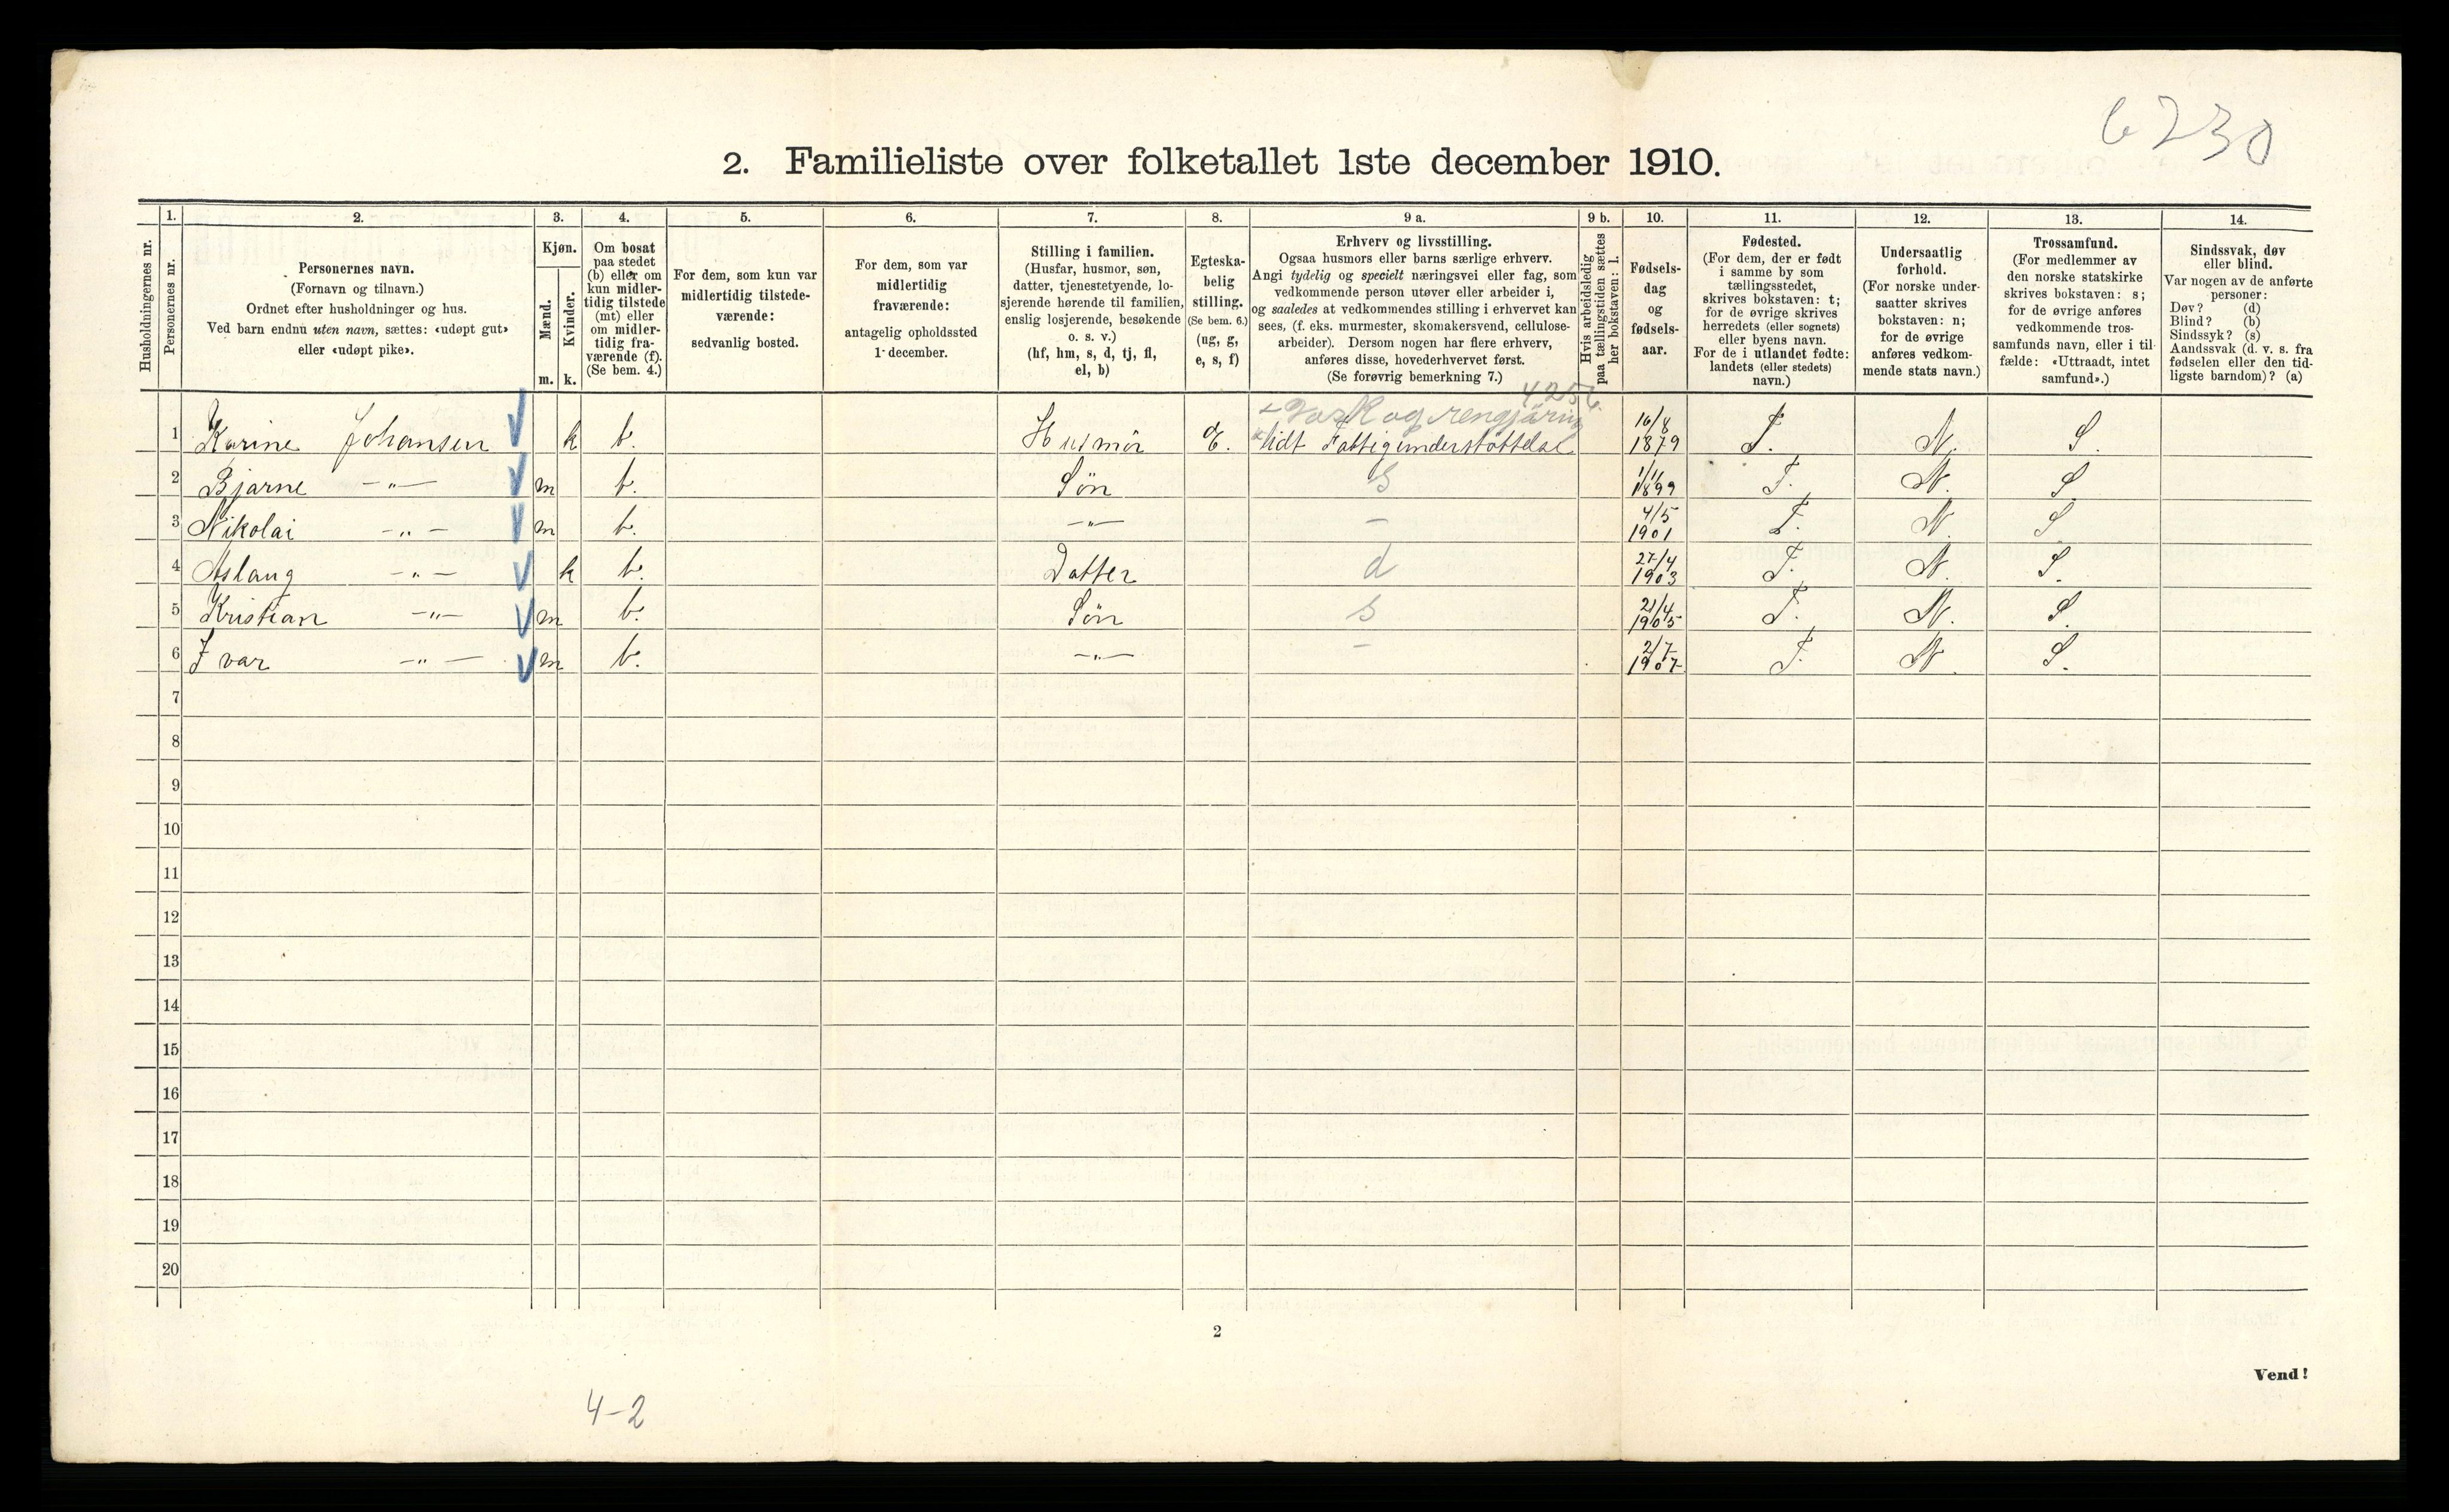 6230
2. Familieliste over folketallet 1ste december 1910.
Husholdningernes nr.
1.
Personernes nr.
2.
Personernes navn.
(Fornavn og tilnavn.)
Ordnet efter husholdninger og hus.
Ved barn endnu uten navn, sættes: «udøpt gut»
eller «udøpt pike».
3.
Kjøn.
Mænd.
Kvinder.
m. k.
4.
Om bosat
paa stedet
(b) eller om
kun midler-
tidig tilstede
(mt) eller
om midler-
tidig fra-
værende (f).
(Se bem. 4.)
5.
For dem, som kun var
midlertidig tilstede-
værende:
sedvanlig bosted.
6.
For dem, som var
midlertidig
fraværende:
antagelig opholdssted
1 december.
7.
Stilling i familien.
(Husfar, husmor, søn,
datter, tjenestetyende, lo-
sjerende hørende til familien,
enslig losjerende, besøkende
o. s. v.)
(hf, hm, s, d, tj, fl,
el, b)
8.
Egteska-
belig
stilling.
(Se bem. 6.)
(ug, g,
e, s, f)
9 a.
Erhverv og livsstilling.
Ogsaa husmors eller barns særlige erhverv.
Angi tydelig og specielt næringsvei eller fag, som
vedkommende person utøver eller arbeider i,
og saaledes at vedkommendes stilling i erhvervet kan
sees, (f. eks. murmester, skomakersvend, cellulose-
arbeider). Dersom nogen har flere erhverv,
anføres disse, hovederhvervet først.
(Se forøvrig bemerkning 7.)
9 b.
Hvis arbeidsledig
paa tællingstiden sættes
her bokstaven: l.
10.
Fødsels-
dag
og
fødsels-
aar.
11.
Fødested.
(For dem, der er født
i samme by som
tællingsstedet,
skrives bokstaven: t;
for de øvrige skrives
herredets (eller sognets)
eller byens navn.
For de i utlandet fødte:
landets (eller stedets)
navn.)
12.
Undersaatlig
forhold.
(For norske under-
saatter skrives
bokstaven: n;
for de øvrige
anføres vedkom-
mende stats navn.)
13.
Trossamfund.
(For medlemmer av
den norske statskirke
skrives bokstaven: s;
for de øvrige anføres
vedkommende tros-
samfunds navn, eller i til-
fælde: «Uttraadt, intet
samfund».)
14.
Sindssvak, døv
eller blind.
Var nogen av de anførte
personer:
Døv? (d)
Blind? (b)
Sindssyk? (s)
Aandssvak (d. v. s. fra
fødselen eller den tid-
ligste barndom)? (a)
Vask og rengjøring
1 Karine Johansen k b. Husmör E. lidt Fattigunderstöttelse 16/8 1879 T. N. S.
2 Bjarne -"- m b. Sön s 1/11 1899 T. N. S.
3 Nikolai -"- m b. -"- - 4/5 1901 T. N. S.
4 Aslaug -"- k b. Datter d 27/4 1903 T. N. S.
5 Kristian -"- m b. Sön s 21/4 1905 T. N. S.
6 Ivar -"- m b. -"- - 2/7 1907 T. N. S.
7
8
9
10
11
12
13
14
15
16
17
18
19
20
2
Vend!
4-2